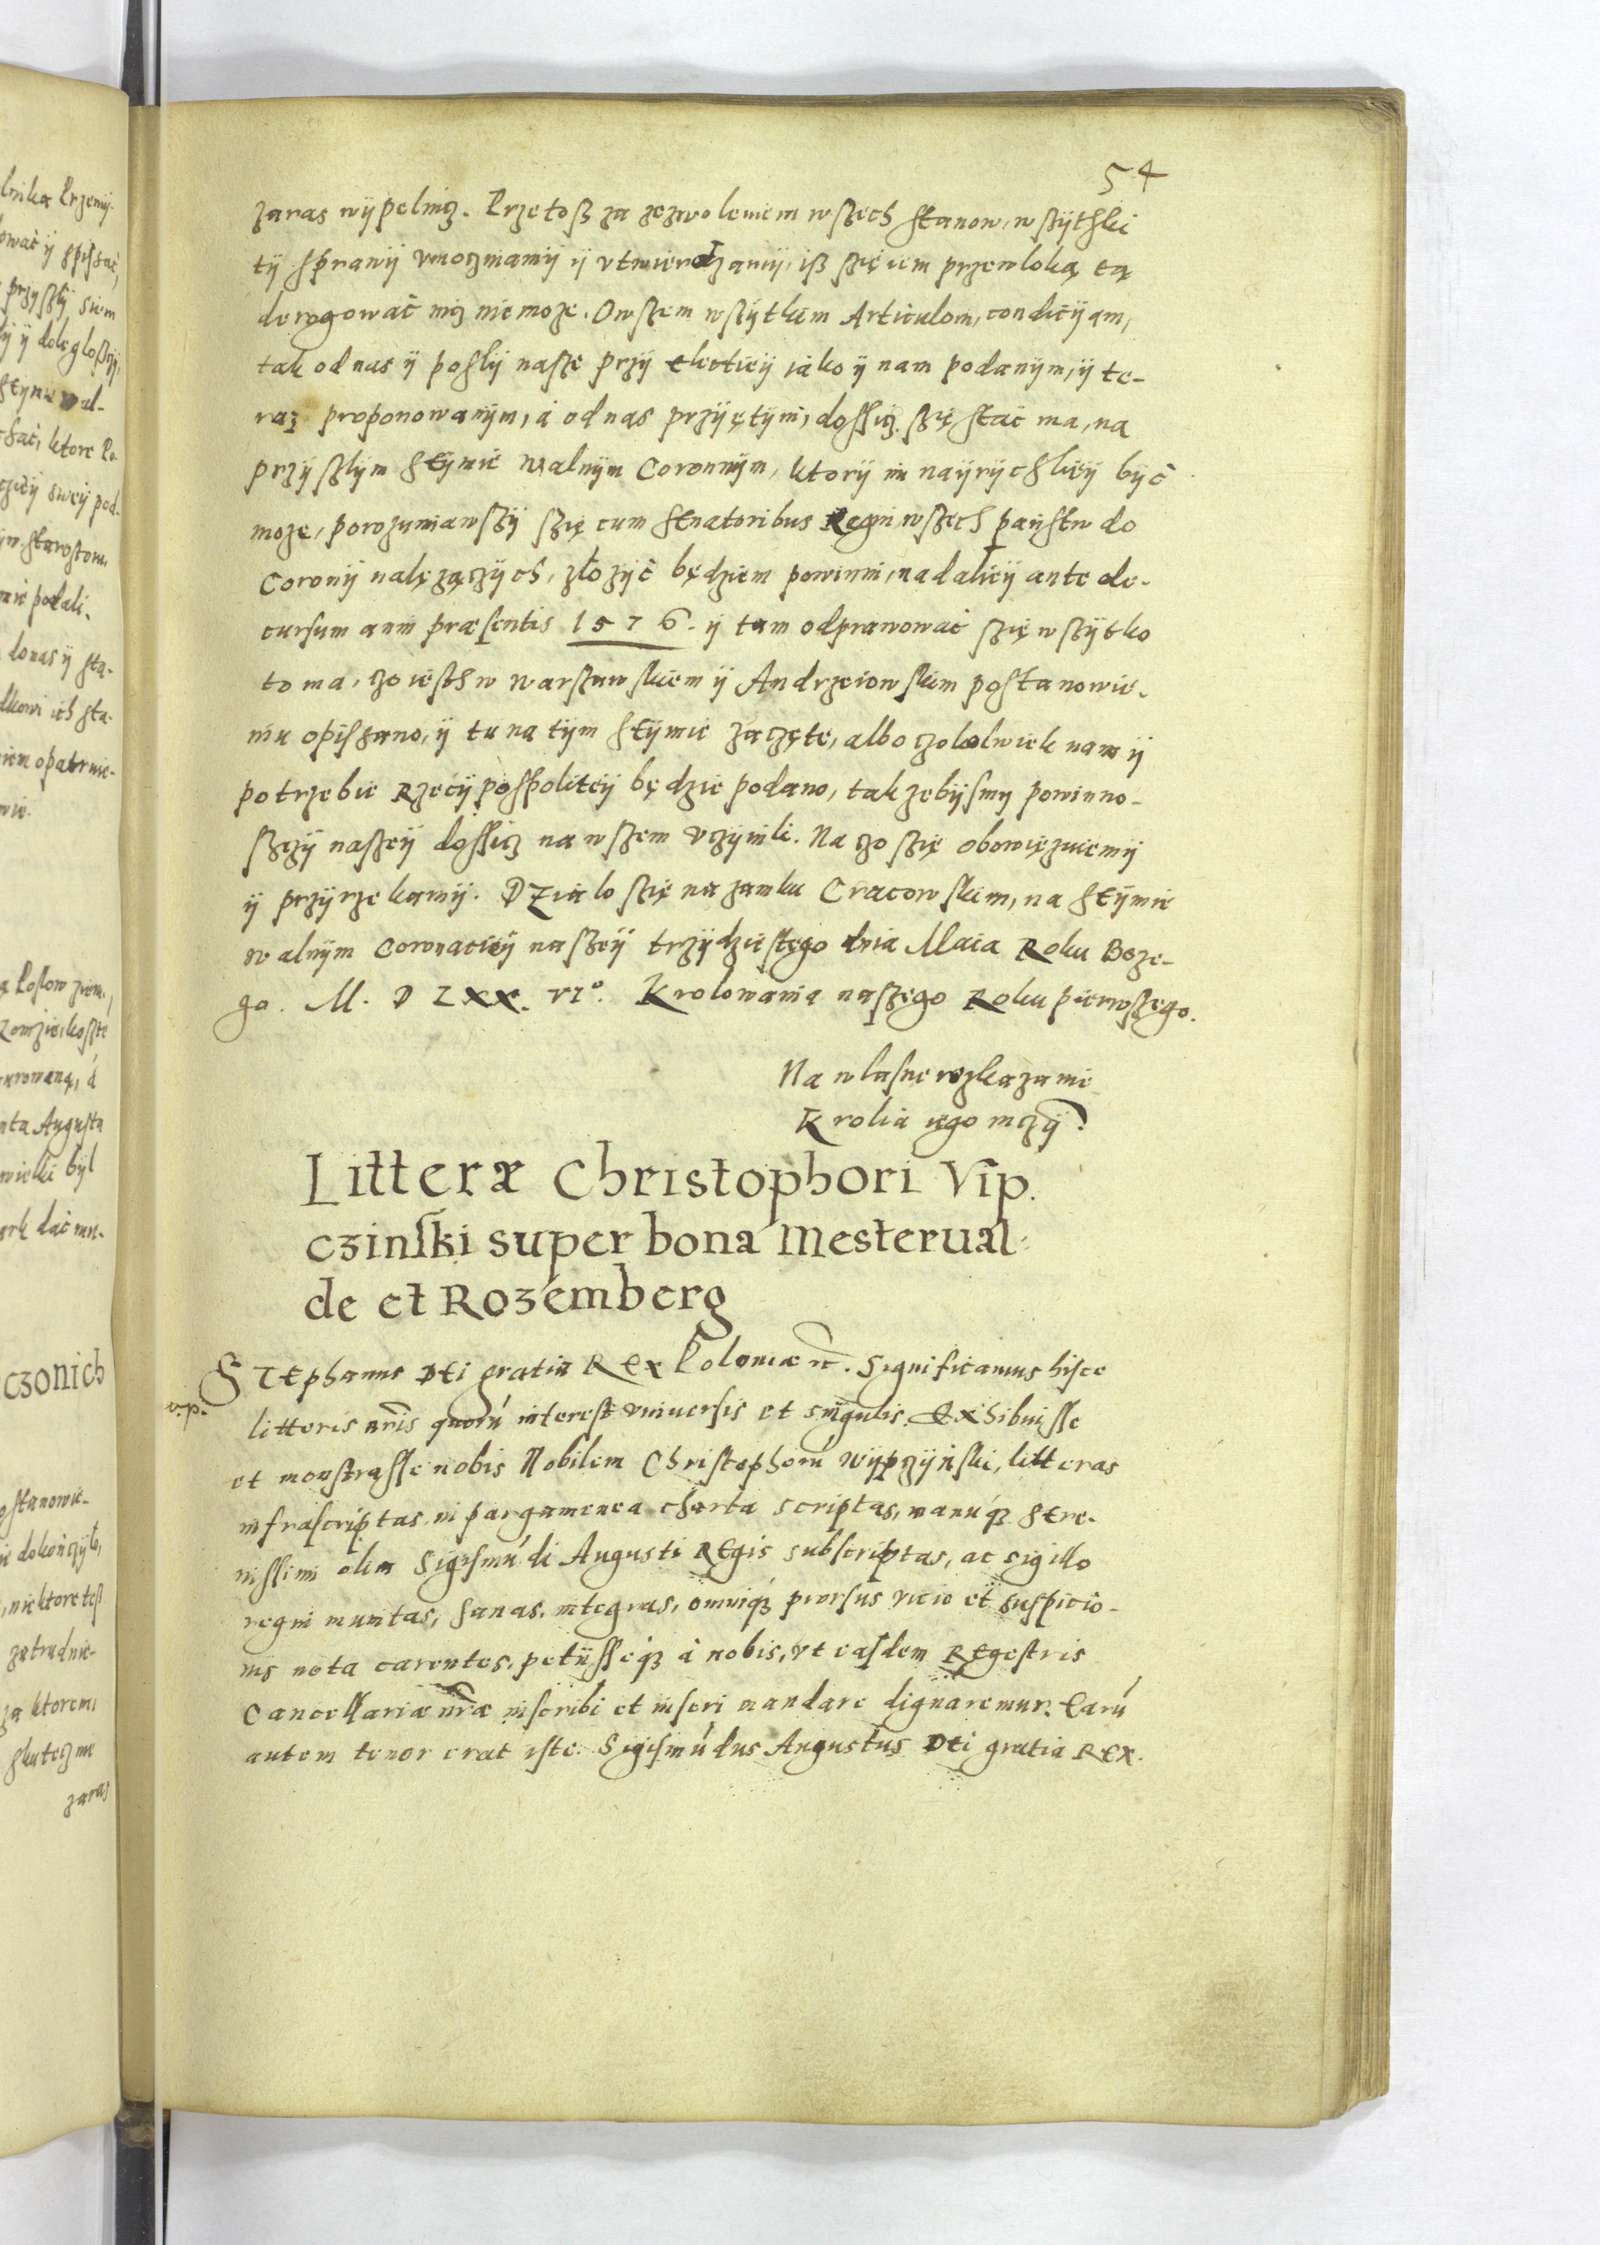 54
zaras wÿpelnicz. Przetosz za zezwoleniem wszech stanow, wszÿtski
tÿ sprawÿ vmoczniamÿ ÿ vtwierdzamÿ, isz szię iem przewloką tą
derogować nicz niemoże. Owszem wszÿtkim Articulom, condicÿam,
tak od nas ÿ poslÿ nasze przÿ electieÿ iako ÿ nam podanÿm, ÿ te-
raz proponowanÿm, á od nas przÿiętÿm, dossicz szię stać ma, na
przÿszlÿm sEÿmie walnÿm Coronnÿm, ktorÿ im naÿrÿchlieÿ być
może, porozumiawszÿ szię cum senatoribus Regni wszech państw do
Coronÿ należączÿch, złożÿć będziem powinni, nadalieÿ ante de-
cursum anni præsentis 1576. ÿ tam odprawować szię wszÿtko
to ma, czo iesth w warszawskiem ÿ Andrzeiowskim postanowie-
niu opiszano, ÿ tu na tÿm sEÿmie zaczęte, albo czokolwiek nam ÿ
potrzebie Rzecÿpospoliteÿ będzie podano, tak zebÿsmÿ powinno-
szczÿ naszeÿ dossicz na wszem vczÿnili. Na czo szię obowięzuiemÿ
ÿ przÿrzekamÿ. DZialo szię na zamku Cracowskim, na sEÿmie
walnÿm Coronacieÿ naszeÿ trzÿdziestego dnia Maia Roku Boze-
go. M. D LXX. VI°. Krolowania naszego Roku pierwszego.
Na wlasne rozkazanie
Krolia iego mczÿ.
Litteræ Christophori Vip.
czinski super bona Mesterual-
de et Rozemberg
v.p.
STEphanus DEi gratia REx Poloniæ &c. Significamus hisce
litteris nr̃is quorú interest vniuersis et singulis, Exhibuisse
et monstrasse nobis Nobilem Christophorú Wÿpczÿński, litteras
infrascriptas in pargamenea charta scriptas, manuq́ż sere-
nissimi olim Sigismúdi Augusti REgis subscriptas, ac sigillo
regni munitas, sanas, integras, omniq́ż prorsus vicio et suspicio-
nis nota carentes, petÿsseq́ż à nobis, vt easdem REgestris
Cancellariæ nr̃æ inscribi et inseri mandare dignaremur. Earú
autem tenor erat iste. Sigismúdus Augustus DEi gratia REX.